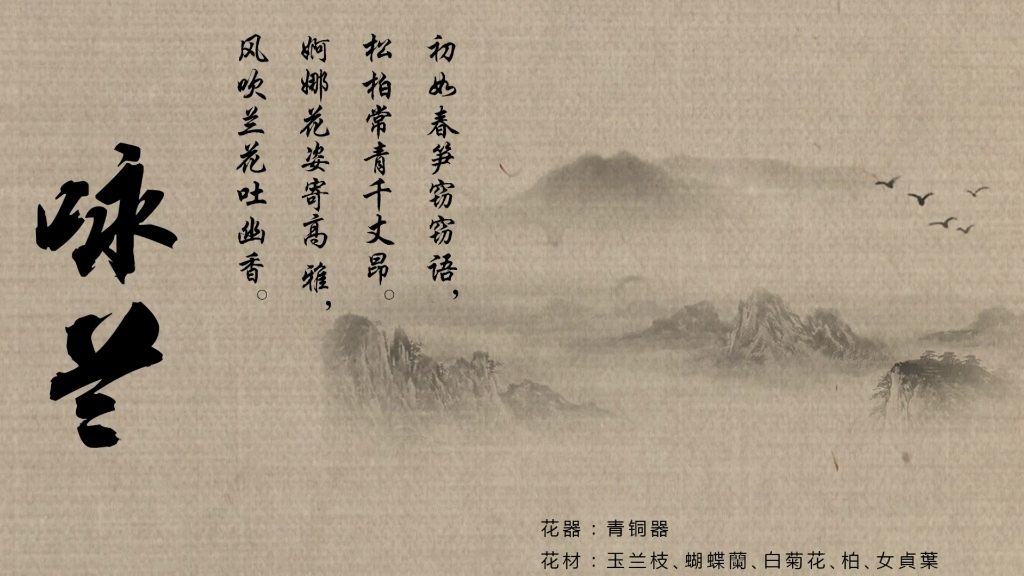 咏兰
初如春笋窃窃语，
松柏常青千丈昂。
婀娜花姿寄高雅，
风吹兰花吐幽香。
花器：青铜器
花材：玉兰枝、蝴蝶蘭、白菊花、柏、女貞葉